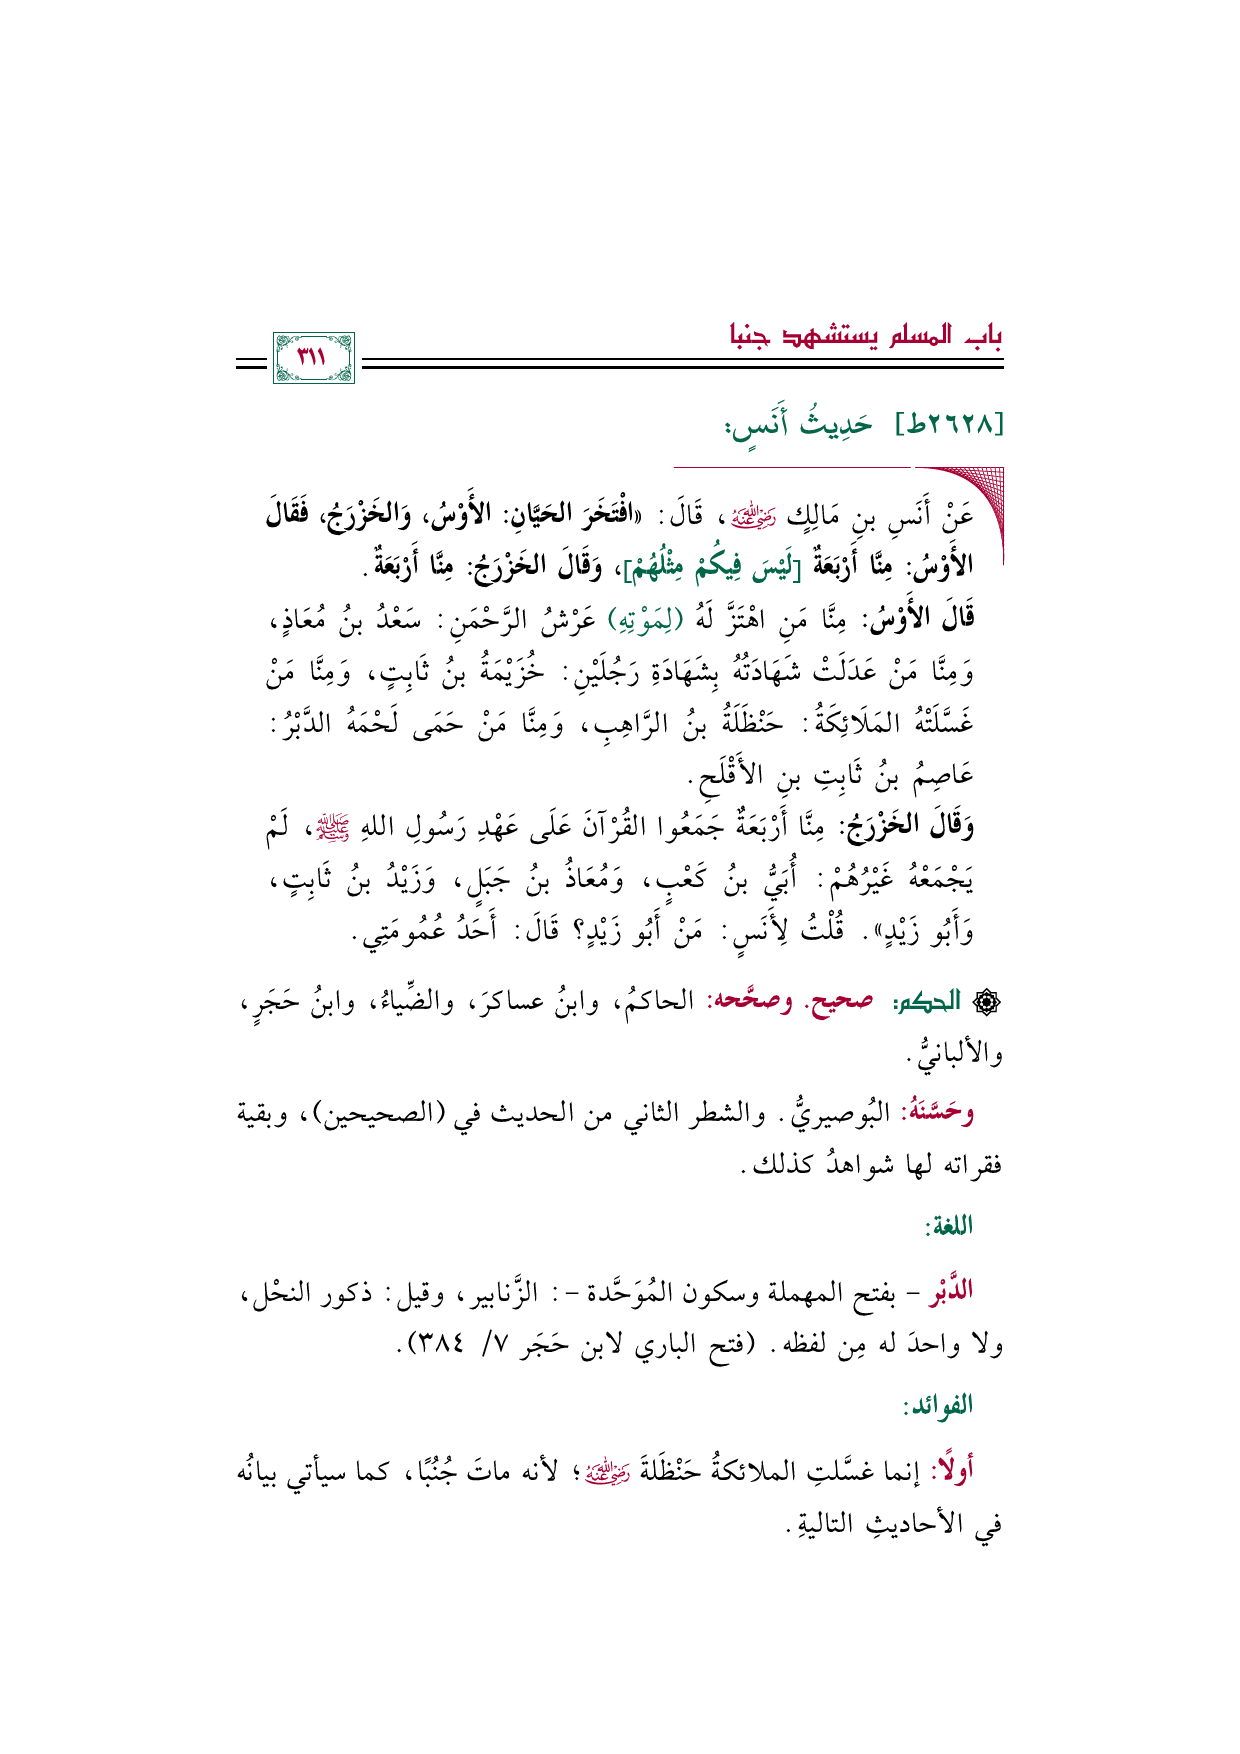 باب المسلم يستشهد جنبا
٣١١
[٢٦٢٨ط] حَدِيثُ أَنَسٍ:
عَنْ أَنَسِ بنِ مَالِكٍ ﵁، قَالَ: «افْتَخَرَ الحَيَّانِ: الأَوْسُ، وَالخَزْرَجُ، فَقَالَ
الأَوْسُ: مِنَّا أَرْبَعَةٌ [لَيْسَ فِيكُمْ مِثْلُهُمْ]، وَقَالَ الخَزْرَجُ: مِنَّا أَرْبَعَةٌ.
قَالَ الأَوْسُ: مِنَّا مَنِ اهْتَزَّ لَهُ (لِمَوْتِهِ) عَرْشُ الرَّحْمَنِ: سَعْدُ بنُ مُعَاذٍ،
وَمِنَّا مَنْ عَدَلَتْ شَهَادَتُهُ بِشَهَادَةِ رَجُلَيْنِ: خُزَيْمَةُ بنُ ثَابِتٍ، وَمِنَّا مَنْ
غَسَّلَتْهُ المَلَائِكَةُ: حَنْظَلَةُ بنُ الرَّاهِبِ، وَمِنَّا مَنْ حَمَى لَحْمَهُ الدَّبْرُ:
عَاصِمُ بنُ ثَابِتِ بنِ الأَقْلَحِ.
وَقَالَ الخَزْرَجُ: مِنَّا أَرْبَعَةٌ جَمَعُوا القُرْآنَ عَلَى عَهْدِ رَسُولِ اللهِ ﷺ، لَمْ
يَجْمَعْهُ غَيْرُهُمْ: أُبَيُّ بنُ كَعْبٍ، وَمُعَاذُ بنُ جَبَلٍ، وَزَيْدُ بنُ ثَابِتٍ،
وَأَبُو زَيْدٍ». قُلْتُ لِأَنَسٍ: مَنْ أَبُو زَيْدٍ؟ قَالَ: أَحَدُ عُمُومَتِي.
الحكم: صحيح. وصحَّحه: الحاكمُ، وابنُ عساكرَ، والضِّياءُ، وابنُ حَجَرٍ،
والألبانيُّ.
وحَسَّنَهُ: البُوصيريُّ. والشطر الثاني من الحديث في (الصحيحين)، وبقية
فقراته لها شواهدُ كذلك.
اللغة:
الدَّبْر – بفتح المهملة وسكون المُوَحَّدة –: الزَّنابير، وقيل: ذكور النحْل،
ولا واحدَ له مِن لفظه. (فتح الباري لابن حَجَر ٧/ ٣٨٤).
الفوائد:
أولًا: إنما غسَّلتِ الملائكةُ حَنْظَلةَ ﵁؛ لأنه ماتَ جُنُبًا، كما سيأتي بيانُه
في الأحاديثِ التاليةِ.